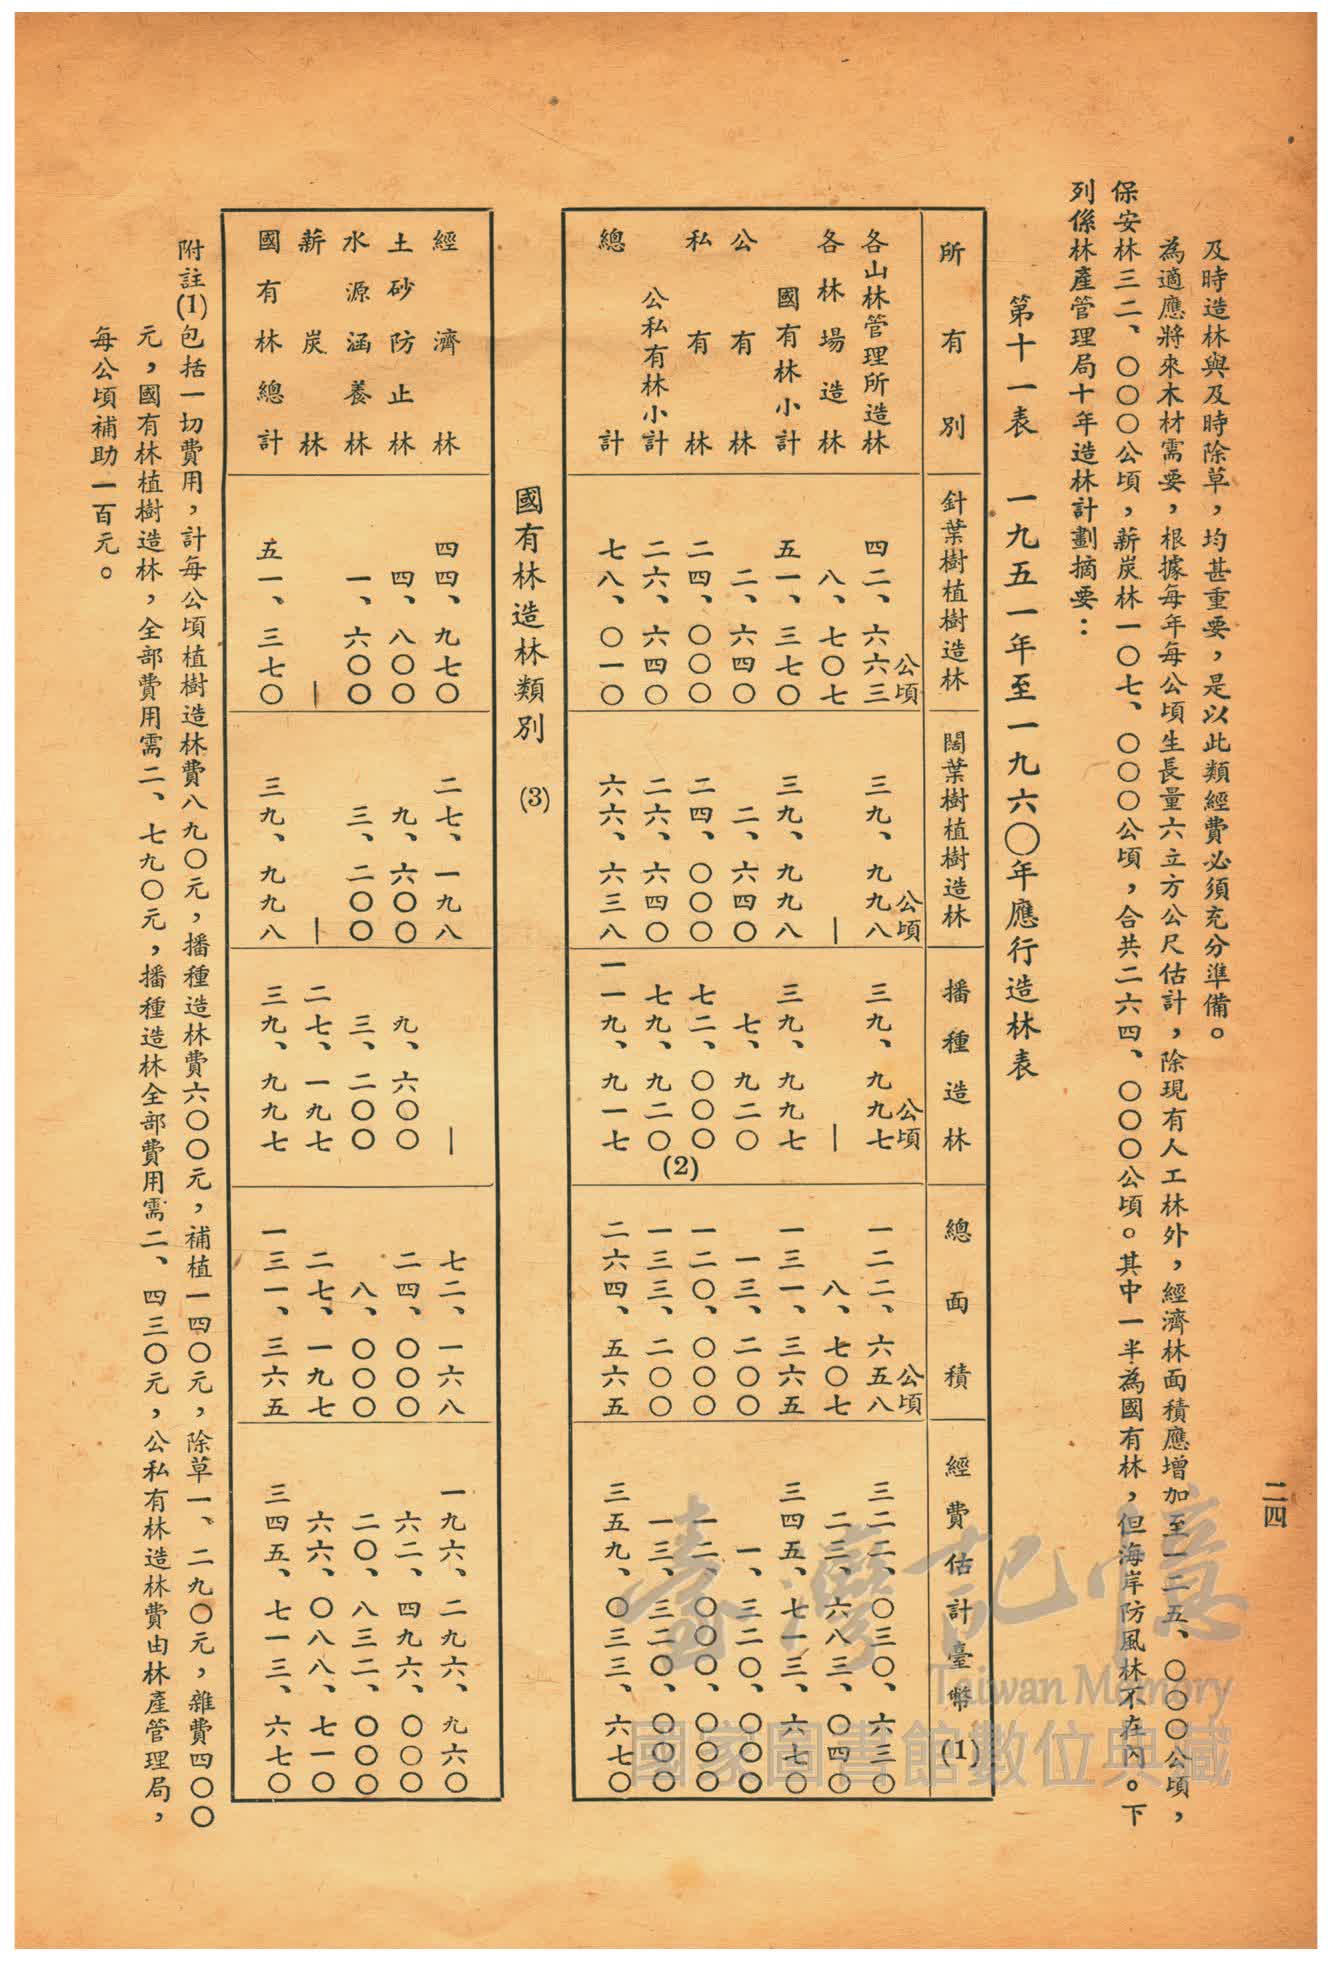 二四
及時造林與及時除草，均甚重要，是以此類經費必須充分準備。
為適應將來木材需要，根據每年每公頃生長量六立方公尺估計，除現有人工林外，經濟林面積應增加至一二五、〇〇〇公頃，
保安林三二、〇〇〇公頃，薪炭林一〇七、〇〇〇公頃，合共二六四、〇〇〇公頃。其中一半為國有林，但海岸防風林不在內。下
列係林產管理局十年造林計劃摘要：
第十一表 一九五一年至一九六〇年應行造林表
所有別 針葉樹植樹造林 闊葉樹植樹造林 播種造林 總面積 經費估計臺幣(1)
公頃 公頃 公頃 公頃
各山林管理所造林 四二、六六三 三九、九九八 三九、九九七 一二二、六五八 三二二、〇三〇、六三〇
各林場造林 八、七〇七 — — 八、七〇七 二三、六八三、〇四〇
國有林小計 五一、三七〇 三九、九九八 三九、九九七 一三一、三六五 三四五、七一三、六七〇
公有林 二、六四〇 二、六四〇 七、九二〇 一三、二〇〇 一、三二〇、〇〇〇
私有林 二四、〇〇〇 二四、〇〇〇 七二、〇〇〇 一二〇、〇〇〇 一二、〇〇〇、〇〇〇
公私有林小計 二六、六四〇 二六、六四〇 七九、九二〇(2) 一三三、二〇〇 一三、三二〇、〇〇〇
總計 七八、〇一〇 六六、六三八 一一九、九一七 二六四、五六五 三五九、〇三三、六七〇
國有林造林類別 (3)
經濟林 四四、九七〇 二七、一九八 — 七二、一六八 一九六、二九六、九六〇
土砂防止林 四、八〇〇 九、六〇〇 九、六〇〇 二四、〇〇〇 六二、四九六、〇〇〇
水源涵養林 一、六〇〇 三、二〇〇 三、二〇〇 八、〇〇〇 二〇、八三二、〇〇〇
薪炭林 — — 二七、一九七 二七、一九七 六六、〇八八、七一〇
國有林總計 五一、三七〇 三九、九九八 三九、九九七 一三一、三六五 三四五、七一三、六七〇
附註(1)包括一切費用，計每公頃植樹造林費八九〇元，播種造林費六〇〇元，補植一四〇元，除草一、二九〇元，雜費四〇〇
元，國有林植樹造林，全部費用需二、七九〇元，播種造林全部費用需二、四三〇元，公私有林造林費由林產管理局，
每公頃補助一百元。
臺灣記憶
Taiwan Memory
國家圖書館數位典藏